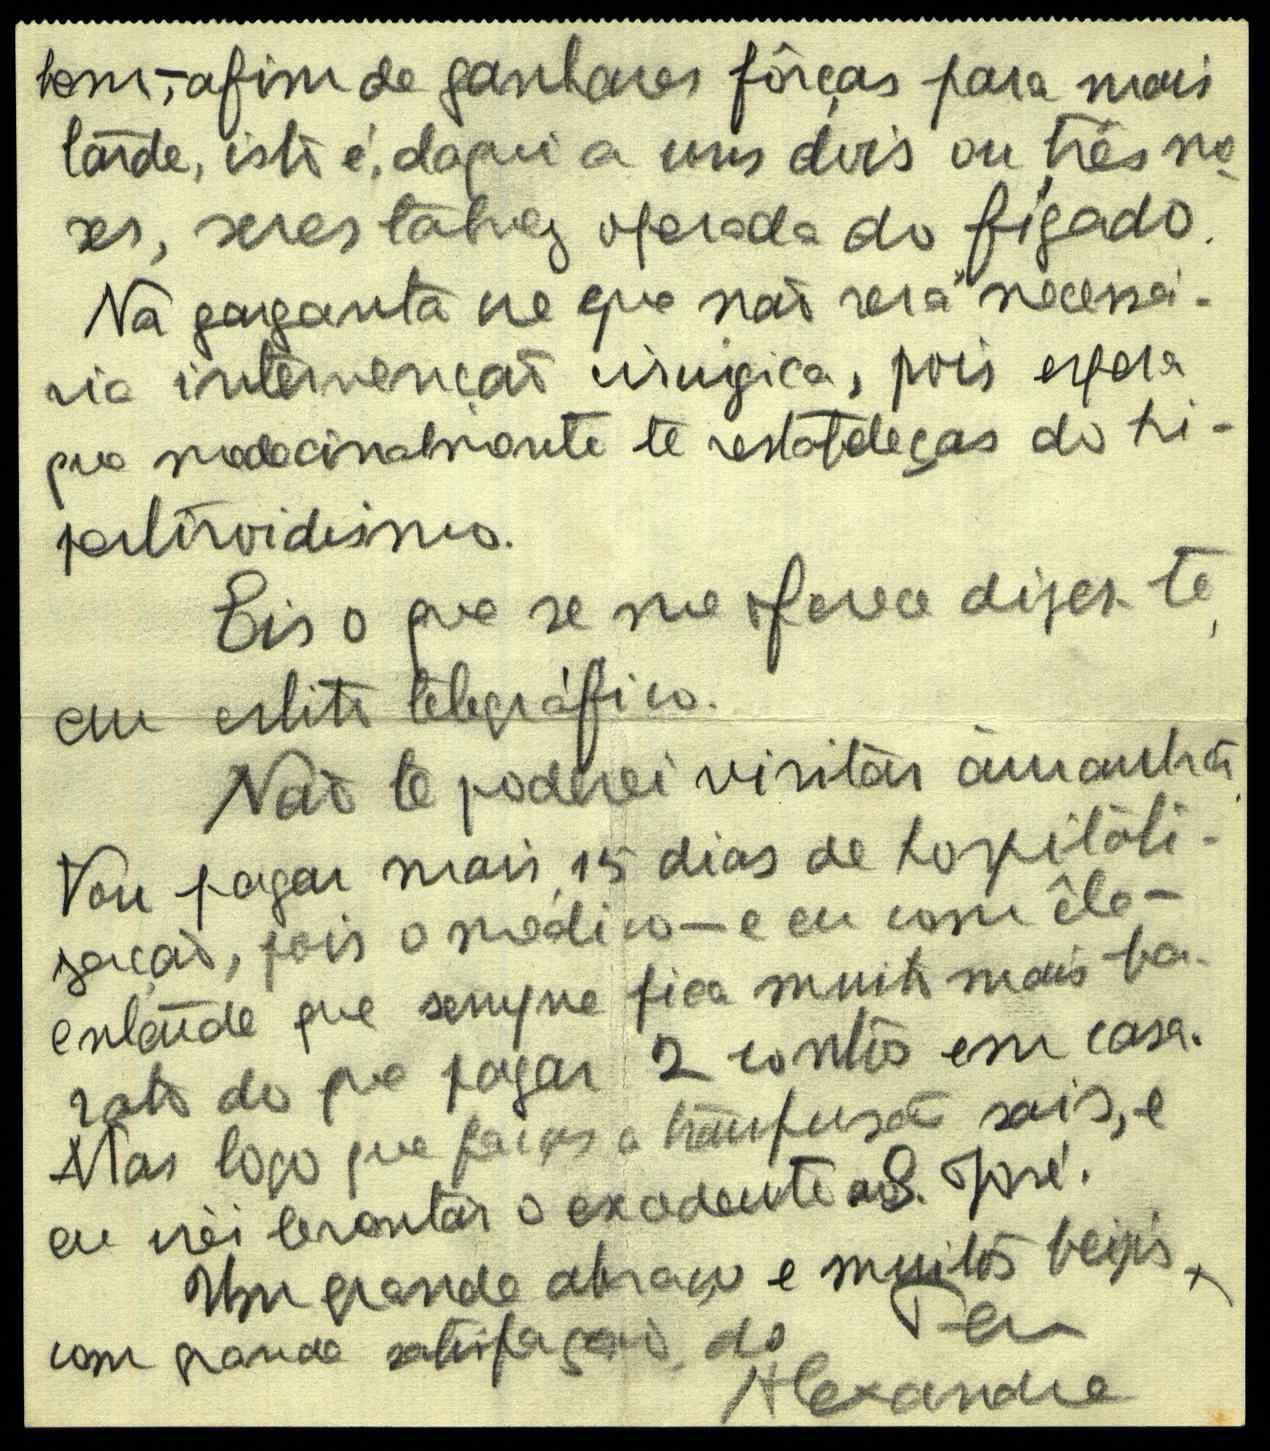 bem, — afim de ganhares fôrças para mais
tarde, isto é, daqui a uns dois ou três me-
ses, seres talvez operada do fígado.
Na garganta vê que não será necessá-
ria intervenção cirúrgica, pois espera
que medicinalmente te restabeleças do hi-
pertiroidismo.
Eis o que se me oferece dizer-te,
em estilo telegráfico.
Não te poderei visitar àmanhã.
Vou pagar mais 15 dias de hospitali-
zação, pois o médico — e eu com êle —
entende que sempre fica muito mais ba-
rato do que pagar 2 contos em casa.
Mas logo que faças a tranfusão sais, e
eu irei levantar o excedente ao S. José.
Um grande abraço e muitos beijos,
com grande satisfação, do Teu
Alexandre